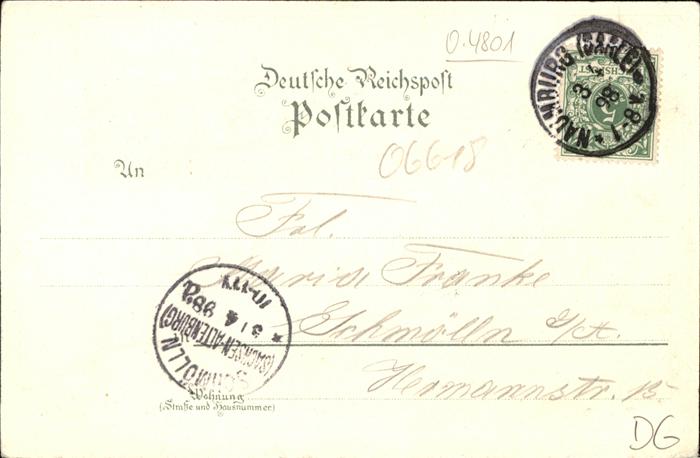 0.4801
NAUMBURG (SAALE)
3 4 98
Deutsche Reichspost
Postkarte
06618
An
Frl.
Maria Franke
Schmölln S/A.
Hermannstr. 15
SCHMÖLLN
(SACHSEN-ALTENBURG)
3/4 98
Wohnung
(Straße und Hausnummer)
DG